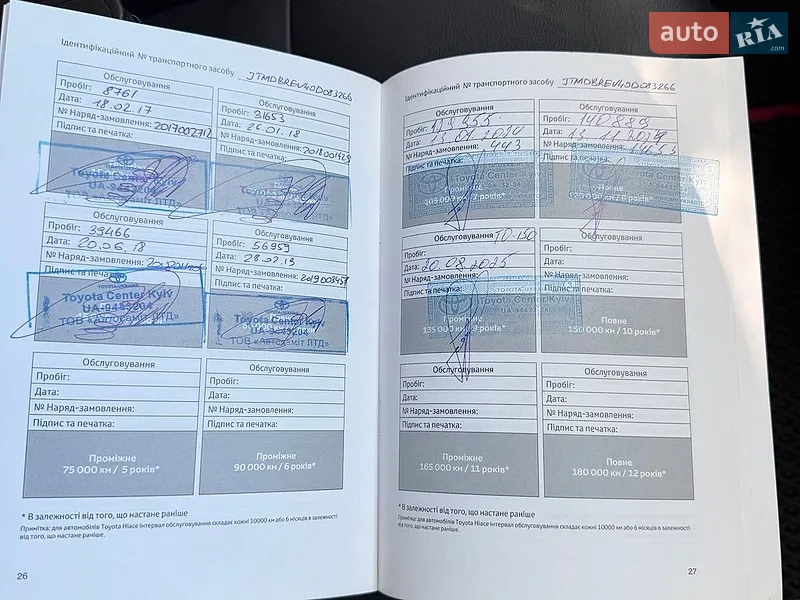 auto RIA .com
Ідентифікаційний № транспортного засобу JTMDBREV40D083266
Обслуговування
Пробіг: 8761
Дата: 18.02.17
№ Наряд-замовлення: 2017002712
Підпис та печатка:
Toyota Center Kyiv
UA-9443204
Обслуговування
Пробіг: 31653
Дата: 26.01.18
№ Наряд-замовлення: 2018001429
Підпис та печатка:
Обслуговування
Пробіг: 39466
Дата: 20.06.18
№ Наряд-замовлення:
Підпис та печатка:
Toyota Center Kyiv
UA-9443204
ТОВ «Автосаміт ЛТД»
Обслуговування
Пробіг: 56959
Дата: 28.02.19
№ Наряд-замовлення:
Підпис та печатка:
Toyota Center Kyiv
UA-9443204
ТОВ «Автосаміт ЛТД»
Обслуговування
Пробіг:
Дата:
№ Наряд-замовлення:
Підпис та печатка:
Проміжне
75 000 км / 5 років*
Обслуговування
Пробіг:
Дата:
№ Наряд-замовлення:
Підпис та печатка:
Проміжне
90 000 км / 6 років*
* В залежності від того, що настане раніше
Примітка: для автомобілів Toyota Hiace інтервал обслуговування складає кожні 10000 км або 6 місяців в залежності
від того, що настане раніше.
26
Ідентифікаційний № транспортного засобу JTMDBREV40D083266
Обслуговування
Пробіг:
Дата:
№ Наряд-замовлення: 443
Підпис та печатка:
Toyota Center Kyiv
Обслуговування
Пробіг:
Дата: 13.11.2024
№ Наряд-замовлення:
Підпис та печатка:
Toyota Center Kyiv
Обслуговування TO-150
Пробіг:
Дата: 20.08.2025
№ Наряд-замовлення:
Підпис та печатка:
135 000 км / 9 років*
Обслуговування
Пробіг:
Дата:
№ Наряд-замовлення:
Підпис та печатка:
Повне
150 000 км / 10 років*
Обслуговування
Пробіг:
Дата:
№ Наряд-замовлення:
Підпис та печатка:
Проміжне
165 000 км / 11 років*
Обслуговування
Пробіг:
Дата:
№ Наряд-замовлення:
Підпис та печатка:
Повне
180 000 км / 12 років*
* В залежності від того, що настане раніше
Примітка: для автомобілів Toyota Hiace інтервал обслуговування складає кожні 10000 км або 6 місяців в залежності
від того, що настане раніше.
27